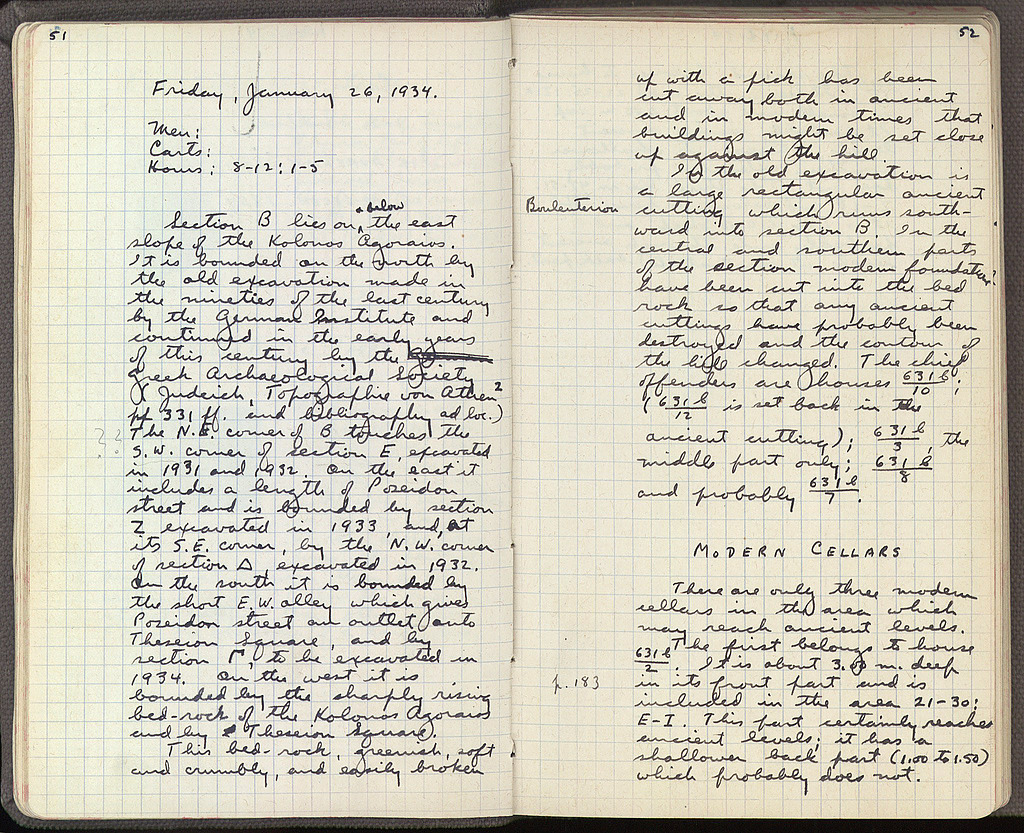 51
Friday, January 26, 1934.
Men:
Carts:
Hours: 8-12: 1-5
& below
Section B lies on, the east
slope of the Kolonos Agoraios.
It is bounded on the north by
the old excavation made in
the nineties of the last century
by the German Institute and
continued in the early years
of this century by the
Greek Archaeological Society
(Judeich, Topographie von Athen²
pp 331 ff. and bibliography ad loc.)
?? The N.E. corner of B touches the
S.W. corner of section E, excavated
in 1931 and 1932. On the east it
includes a length of Poseidon
street and is bounded by section
Z excavated in 1933, and, at
its S.E. corner, by the N.W. corner
of section Δ, excavated in 1932.
On the south it is bounded by
the short E.W. alley which gives
Poseidon street an outlet onto
Theseion Square, and by
section Γ, to be excavated in
1934. On the west it is
bounded by the sharply rising
bed-rock of the Kolonos Agoraios
and by Theseion Square).
This bed-rock, greenish, soft
and crumbly, and easily broken
52
up with a pick has been
cut away both in ancient
and in modern times that
buildings might be set close
up against the hill.
In the old excavation is
a large rectangular ancient
Bouleuterion cutting which runs south-
ward into section B. In the
central and southern parts
of the section modern foundations
have been cut into the bed
rock so that any ancient
cuttings have probably been
destroyed and the contour of
the hill changed. The chief
offenders are houses 631b/10;
(631b/12 is set back in the
ancient cutting); 631b/3, the
middle part only; 631b/8
and probably 631b/7.
MODERN CELLARS
There are only three modern
cellars in the area which
may reach ancient levels.
The first belongs to house
631b/2. It is about 3.00 m. deep
p. 183 in its front part and is
included in the area 21-30:
E-I. This part certainly reaches
ancient levels; it has a
shallower back part (1.00 to 1.50)
which probably does not.